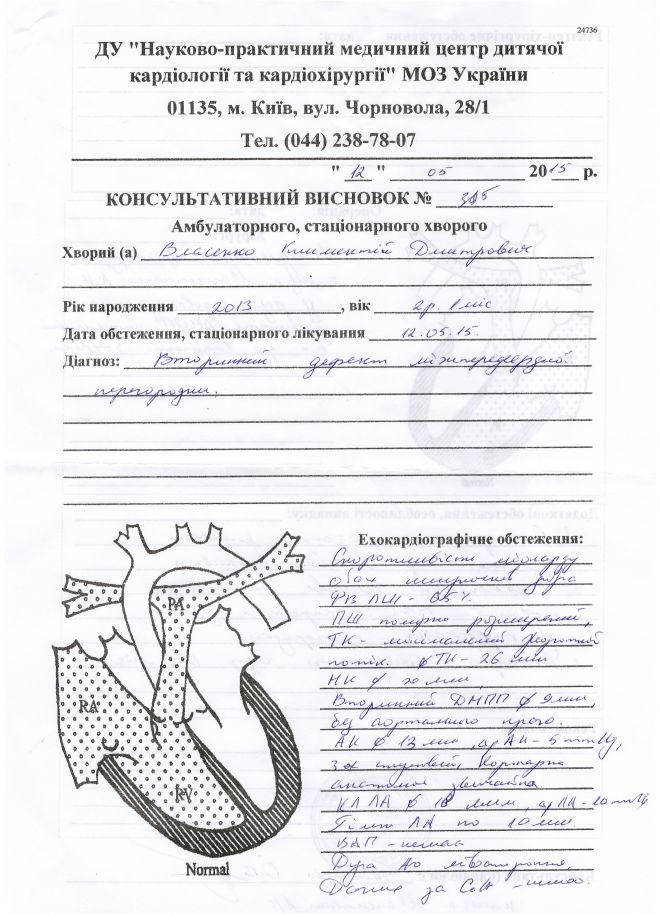 24736
ДУ "Науково-практичний медичний центр дитячої
кардіології та кардіохірургії" МОЗ України
01135, м. Київ, вул. Чорновола, 28/1
Тел. (044) 238-78-07
" 12 " 05 2015 р.
КОНСУЛЬТАТИВНИЙ ВИСНОВОК №
Амбулаторного, стаціонарного хворого
Хворий (а) Власенко Климентій Дмитрович
Рік народження 2013, вік 2р. 1 міс
Дата обстеження, стаціонарного лікування 12.05.15.
Діагноз: Вторинний дефект міжпередсердної
перегородки.
Ехокардіографічне обстеження:
Скоротливість міокарду
обох шлуночків добра
ФВ ЛШ - 65%
ПШ помірно розширений,
ТК - мінімальний зворотній
потік. ⌀ ТК - 26 мм
МК ⌀ 20 мм,
Вторинний ДМПП ⌀ 9 мм,
без аортального краю.
АК ⌀ 13 мм, гр АК - 5 mmHg,
3х стулковий, Коронарна
анатомія звичайна
КЛ ЛА ⌀ 18 мм, гр ЛА - 10 mmHg
Гілки ЛА по 10 мм
ВАП - немає
Дуга Ао
Даних за СоА - немає.
PA
RA
RV
Normal